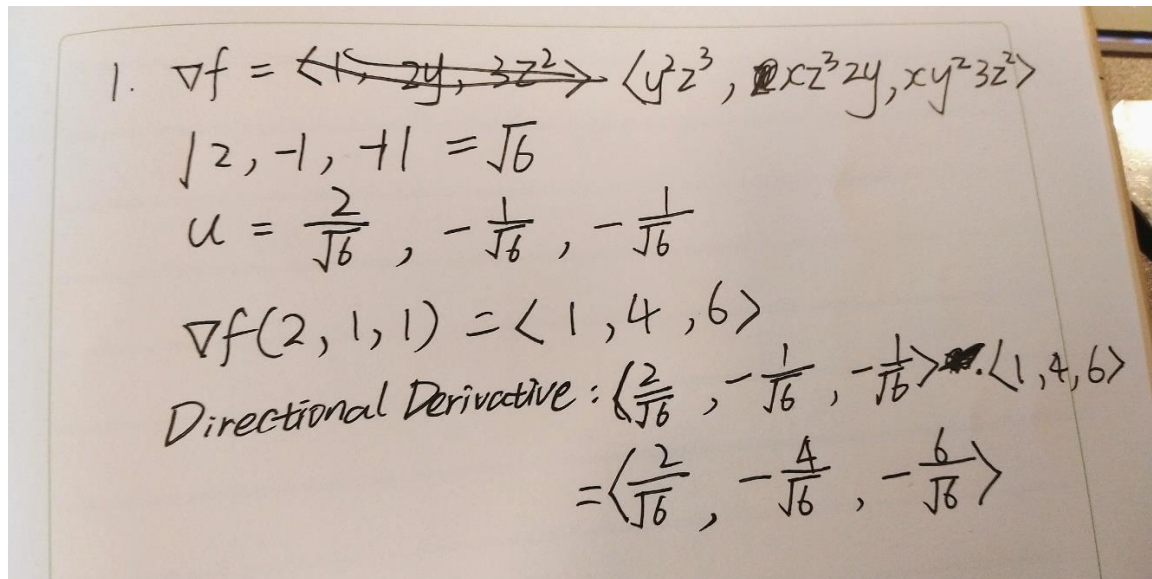 1. ∇f = <1, 2y, 3z²> <y²z³, xz³2y, xy²3z²>
|2, -1, -1| = √6
u = 2/√6, -1/√6, -1/√6
∇f(2, 1, 1) = <1, 4, 6>
Directional Derivative: <2/√6, -1/√6, -1/√6> · <1, 4, 6>
= <2/√6, -4/√6, -6/√6>